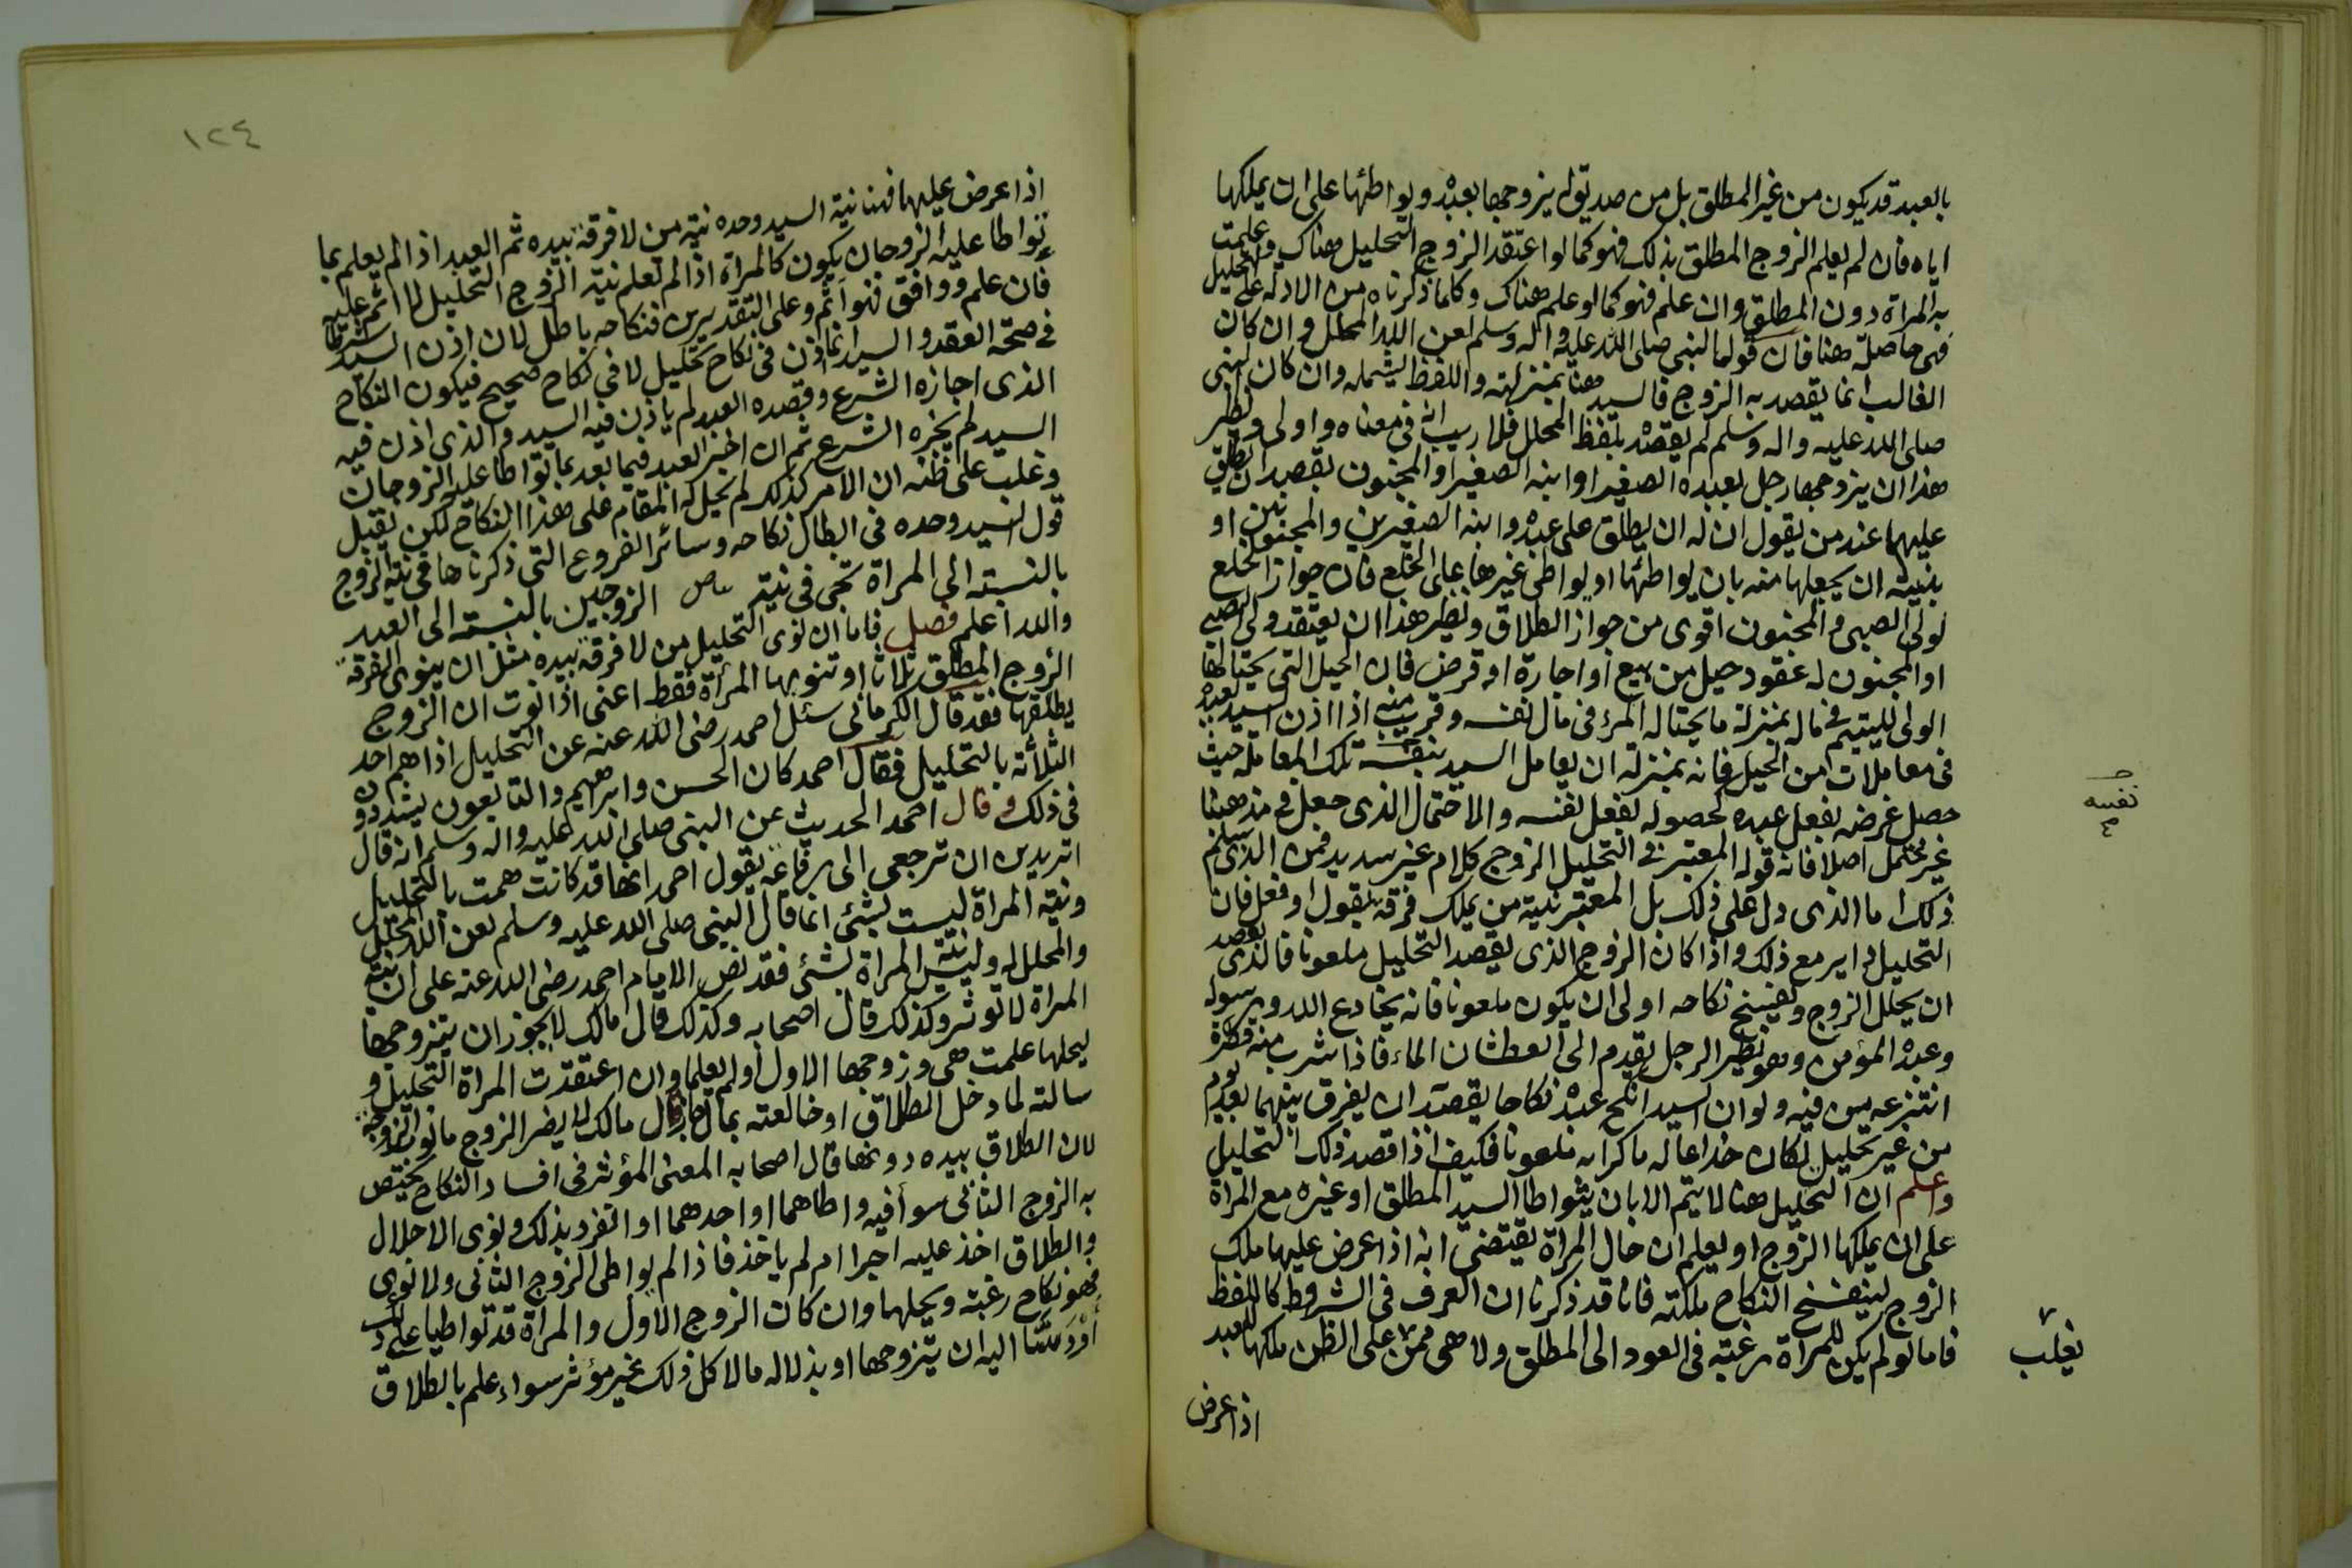 بالعبد قد يكون من غير المطلق بل من صديق له يزوجها بعبده ويواطئها على ان يملكها
اياه فان لم يعلم الزوج المطلق بذلك فهو كما لو اعتقد الزوج التحليل هناك وعلمت
به المراة دون المطلق وان علم فهو كما لو علم هناك وكلما ذكرناه من الادلة على التحليل
فهى حاصلة هنا فان قولنا لنبى صلى الله عليه واله وسلم لعن الله المحلل وان كان
الغالب انما يقصد به الزوج فالسيد هنا بمنزلته واللفظ يشمله وان كان النبى
صلى الله عليه واله وسلم لم يقصده بلفظ المحلل فلا ريب انه فى معناه واولى ونظير
هذا ان يزوجها رجل بعبده الصغير او ابنه الصغير او المجنون بقصد ان يطلق
عليهما عند من يقول ان له ان يطلق على عبده وابنه الصغيرين والمجنونين او
بنية ان يجعلها منه بان يواطئها او يواطى غيرها على الخلع فان جواز الخلع
لولى الصبى والمجنون اقوى من جواز الطلاق ونظير هذا ان يعتقد ولى الصبى
او المجنون له عقود حيل من بيع او اجارة او قرض فان الحيل التى يحتالها
الولى لليتيم فى ماله بمنزلة ما يحتاله المرء فى مال نفسه وقريب منه اذا اذن السيد لعبده
فى معاملات من الحيل فانه بمنزلة ان يعامل السيد بنفسه تلك المعاملة حيث
حصل غرضه بفعل عبده كحصوله بفعل نفسه والاحتمال الذى جعل فى مذهبنا
غير محتمل اصلا فانه قوله المعتبر فى التحليل الزوج كلام غير سديد فمن الذى سلم
ذلك اما الذى دل على ذلك بل المعتبر نية من يملك فرقة بقول او فعل فان
التحليل داير مع ذلك واذا كان الزوج الذى يقصد التحليل ملعونا فالذى يقصد
ان يحلل الزوج ويفسخ نكاحه اولى ان يكون ملعونا فانه يخادع الله ورسوله
وعبده المؤمن وهو نظير الرجل يقدم الى العطشان الماء فاذا شرب منه قطرة
انتزعه من فيه ولو ان السيد انكح عبده نكاحا يقصد ان يفرق بينهما بعد يوم
من غير تحليل لكان خداعا له ماكرا به ملعونا فكيف اذا قصد ذلك التحليل
واعلم ان التحليل هنا لا يتم الا بان يتواطا السيد المطلق او غيره مع المراة
على ان يملكها الزوج او يعلم ان حال المراة يقتضى انه اذا عرض عليها ملك
الزوج لينفسخ النكاح ملكته فانا قد ذكرنا ان العرف فى الشروط كاللفظ
فاما لو لم يكن للمراة رغبة فى العود الى المطلق ولا هى ممن على الظن ملكها للعبد
اذا عرض
نفسه
يغلب
١٢٤
اذا عرض عليها فهنا نية السيد وحده نية من لا فرقة بيده ثم العبد اذا لم يعلم بما
تواطا عليه الزوجان يكون كالمراة اذا لم تعلم نية الزوج التحليل لا اثم عليه
فان علم ووافق فهو آثم وعلى التقديرين فنكاحه باطل لان اذن السيد شرط
فى صحة العقد والسيد انما اذن فى نكاح تحليل لا فى نكاح صحيح فيكون النكاح
الذى اجازه الشرع وقصده العبد لم ياذن فيه السيد والذى اذن فيه
السيد لم يجزه الشرع ثم ان اخبر العبد فيما بعد بما تواطا عليه الزوجان
وغلب على ظنه ان الامر كذلك لم يحل له المقام على هذا النكاح لكن يقبل
قول السيد وحده فى ابطال نكاحه وسائر الفروع التى ذكرناها فى نية الزوج
بالنسبة الى المراة تجى فى نية الزوجين بالنسبة الى العبد
والله اعلم فصل فاما ان نوى التحليل من لا فرقة بيده مثل ان ينوى الفرقة
الزوج المطلق ثلاثا او تنويها المرأة فقط اعنى اذا نوت ان الزوج
يطلقها فقد قال الكرمانى سئل احمد رضى الله عنه عن التحليل اذا هم احد
الثلاثة بالتحليل فقال احمد كان الحسن وابراهيم والتابعون يشددون
فى ذلك وقال احمد الحديث عن النبى صلى الله عليه واله وسلم انه قال
اتريدين ان ترجعى الى رفاعة يقول احمد انها قد كانت همت بالتحليل
ونية المراة ليست بشئ انما قال النبى صلى الله عليه وسلم لعن الله المحلل
والمحلل له وليس نية المراة بشئ فقد نص الامام احمد رضى الله عنه على ان نية
المراة لا تؤثر وكذلك قال اصحابه وكذلك قال مالك لا يجوز ان يتزوجها
ليحلها علمت هى وزوجها الاول او لم يعلما وان اعتقدت المراة التحليل و
سالته لما دخل الطلاق او خالعته بمال جاز قال مالك لا يضر الزوج ما نوت الزوجة
لان الطلاق بيده دونها قال اصحابه المعنى المؤثر فى افساد النكاح يختص
به الزوج الثانى سوا فيه واطاهما او احدهما او انفرد بذلك ونوى الاحلال
والطلاق اخذ عليه اجرا ام لم ياخذ فاذا لم يواطى الزوج الثانى ولا نوى
فهو نكاح رغبة ويحلها وان كان الزوج الاول والمرأة قد تواطيا على ذلك
او دسا اليه ان يتزوجها او بذلا له مالا كل ذلك غير مؤثر سواء علم بالطلاق